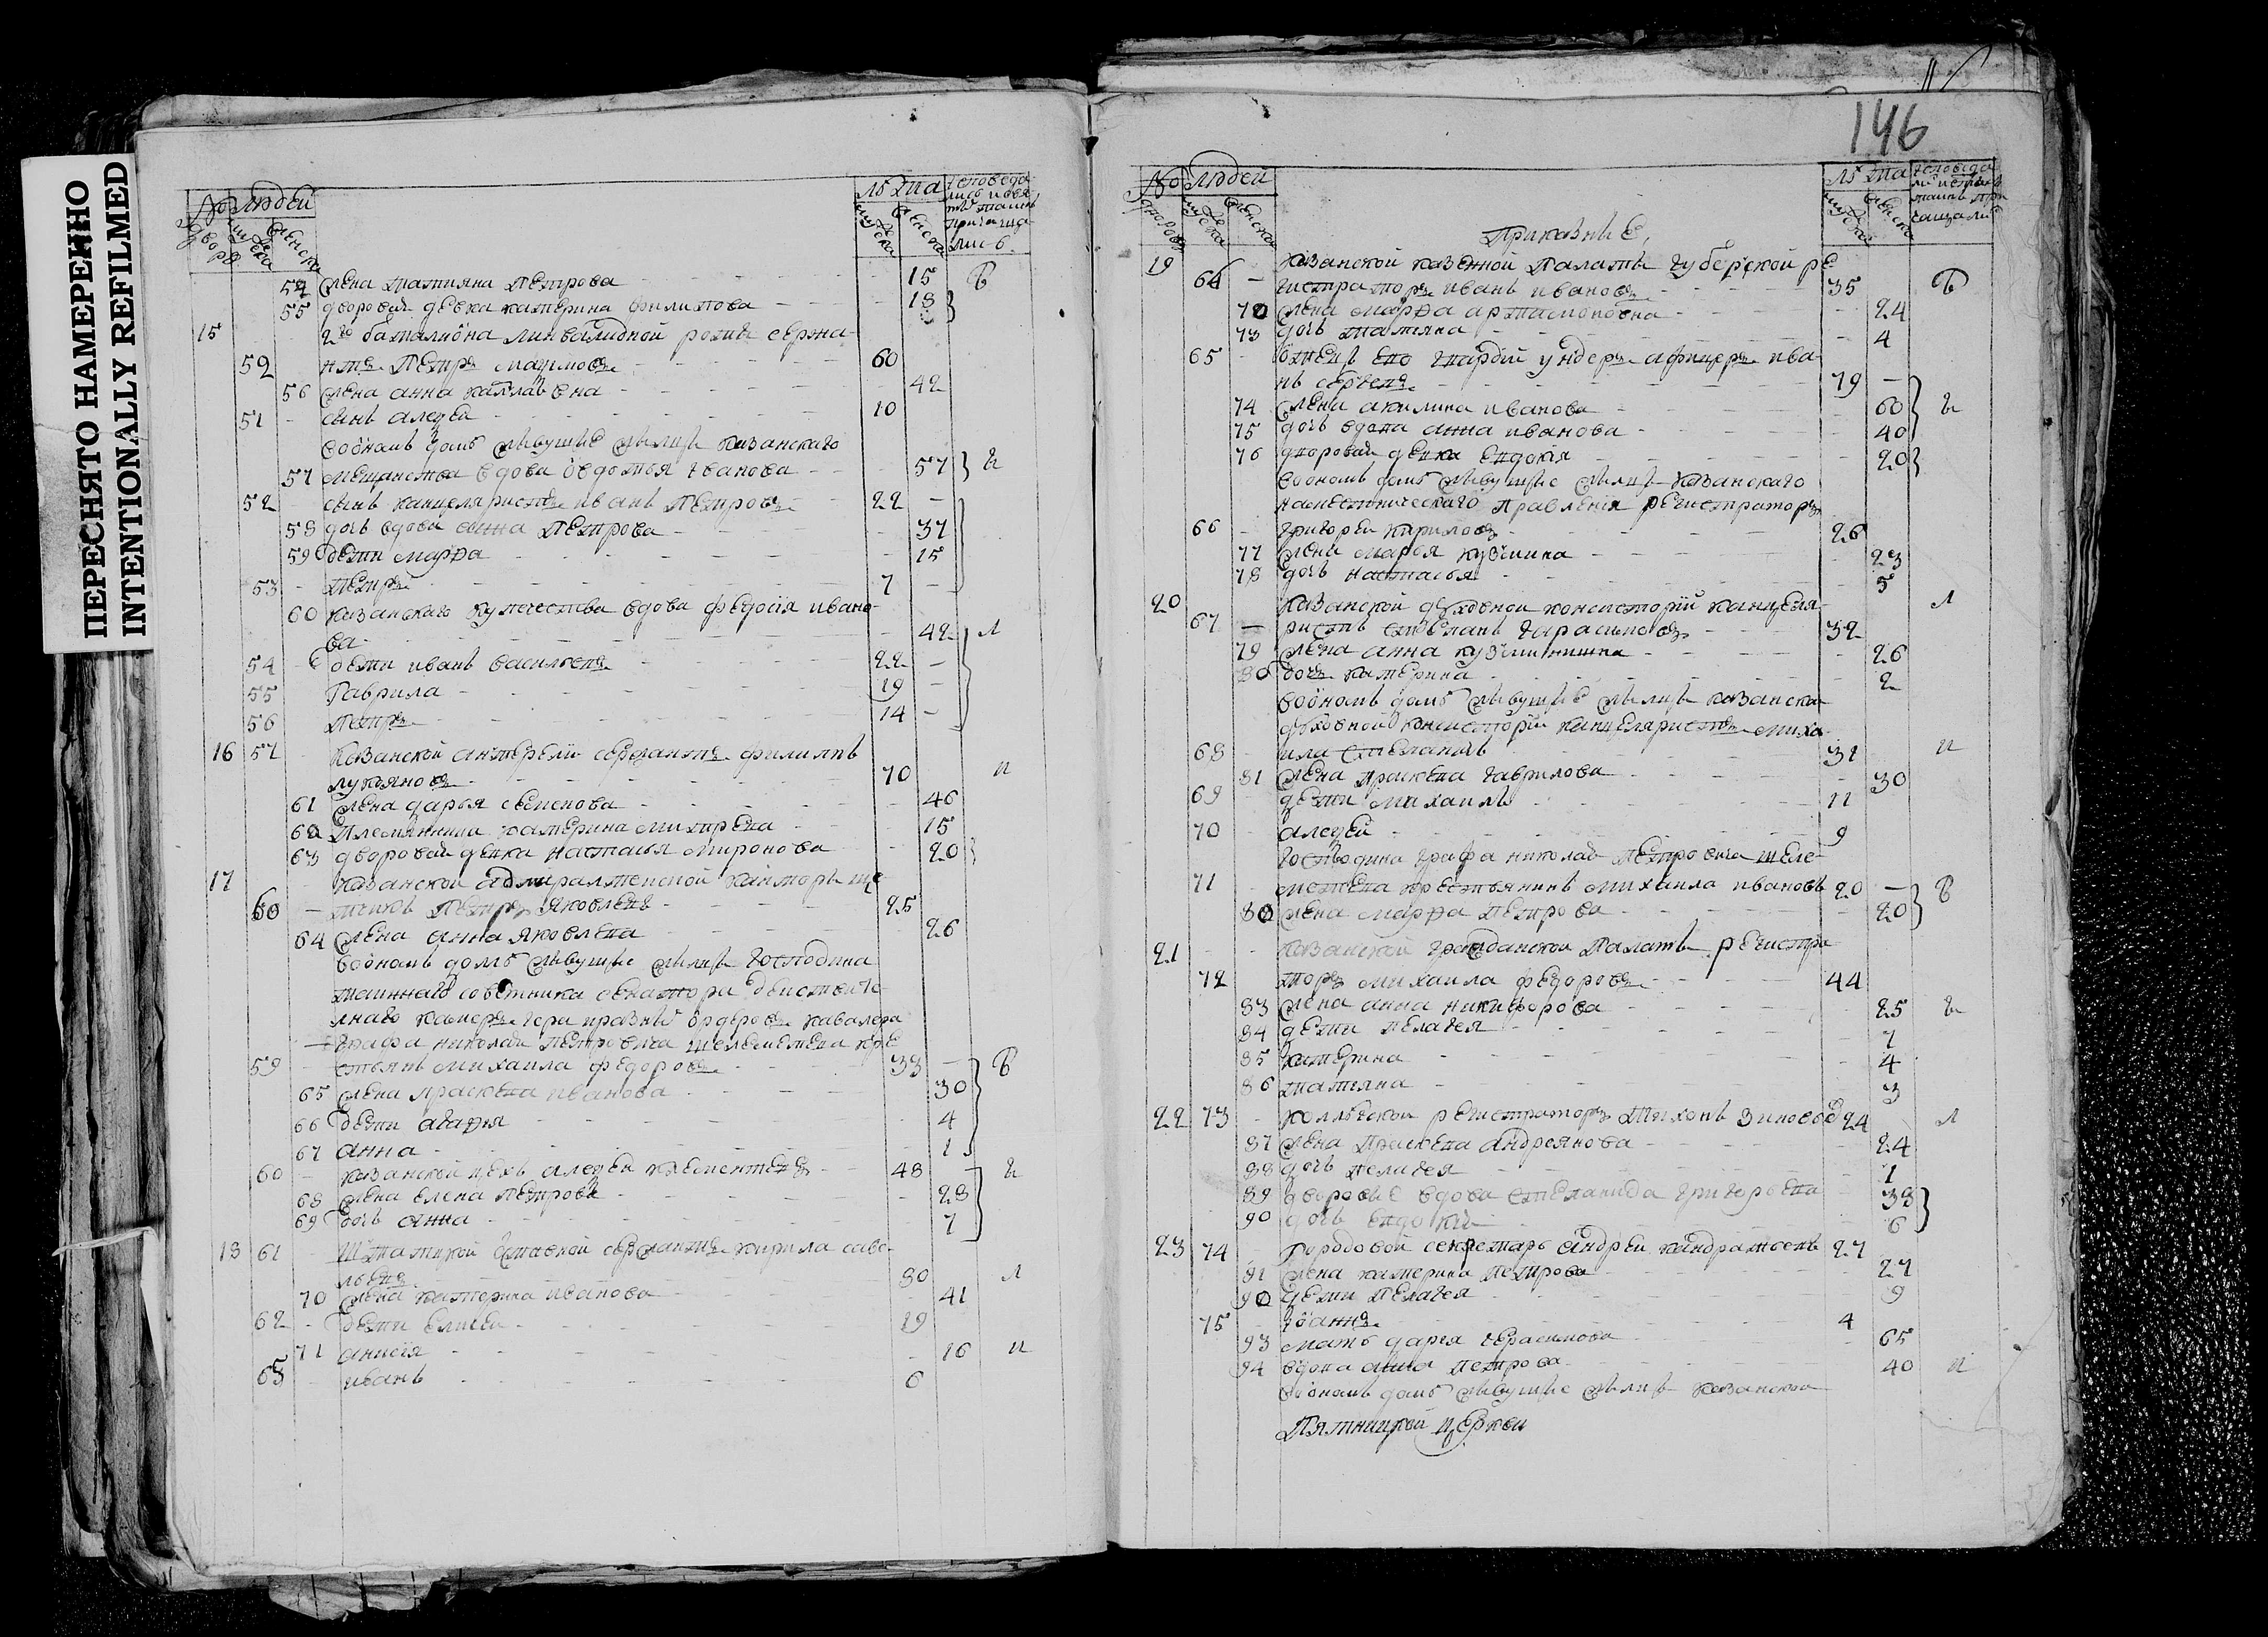 ПЕРЕСНЯТО НАМЕРЕННО
INTENTIONALLY REFILMED
№ людей
лѣта
54 жена татияна петрова 15 в
55 дворовая девка катерина филипова 18
15 2го баталиона
59 петръ 60
56 жена анна 42
51 сынъ алеѯей 10
водномъ домѣ живущие жилцы казанскаго
57 мещанства вдова овдотья иванова 57
52 сынъ канцеляристъ иванъ петровъ 22
58 дочь вдова анна петрова 37
59 дети марфа 15
53 петръ 7
60 казанскаго купечества вдова федосія ивано
ва 42 л
54 дети иванъ васильевъ 22
55 гаврила 19
56 петръ 14
16 57 казанской сержантъ филипъ
лукьяновъ 70 и
61 жена дарья семенова 46
62 племянница катерина 15
63 дворовая девка настасья миронова 20
17 казанской адмиралтейской канторы
петръ яковлевъ 25
64 жена анна яковлева 26
водномъ домѣ живущие жилцы господина
тайннаго советника сенатора
кавалера
графа николая петровича шелеметева кре
59 стьянъ михаила федоровъ 33 в
65 жена праскева иванова 30
66 дети агафья 4
67 анна 1
60 казанской цехъ алеѯей 48
68 жена елена петрова 28
69 дочь анна 7
18 61 сержантъ кирила саве
льевъ 80 л
70 жена катерина иванова 41
62 дети елисей 19
71 анисія 16 и
63 иванъ 6
146
№ людей
лѣта
Приказные
19 казанской казенной палаты губернской ре
64 гистраторъ иванъ ивановъ 35 в
72 жена марфа артамоновна 24
73 дочь татяна 4
65 отецъ его гвардіи ундеръ афицеръ ива
нъ сергеевъ 79
74 жена акилина иванова 60
75 дочь вдова анна иванова 40
76 дворовая девка евдокія 20
водномъ домѣ живущие жилцы казанского
наместническаго правленія регистраторъ
66 григорей кириловъ 26
77 жена марья кузмина 23
78 дочь настасья 5
20 казанской духовной консисторіи канцеля л
67 ристъ степанъ гарасимовъ 32
79 жена анна кузминишна 26
80 дочь катерина 2
водномъ домѣ живущие жилцы казанска
духовной консисторіи канцеляристъ миха
68 ила степановъ 31 и
81 жена праскева гаврилова 30
69 дети михаилъ 11
70 алеѯей 9
господина графа николая петровича шеле
71 метева крестьянинъ михаила ивановъ 20 в
82 жена марфа петрова 20
21 казанской гражданской палаты регистра
72 торъ михаила федоровъ 44
83 жена анна никифорова 25
84 дети пелагея 7
85 катерина 4
86 татяна 3
22 73 колежской регистраторъ тихонъ зиновьевъ 24 л
87 жена праскева андреянова 24
88 дочь пелагея 1
89 дворовые вдова степанида григорьева 38
90 дочь евдокія 6
23 74 городовой секретарь андрей кандратьевъ 27
91 жена катерина петрова 27
92 дети пелагея 9
75 іоаннъ 4
93 мать дарья герасимова 65
94 вдова анна петрова 40 и
водномъ домѣ живущие жилцы казанской
пятницкой церкви